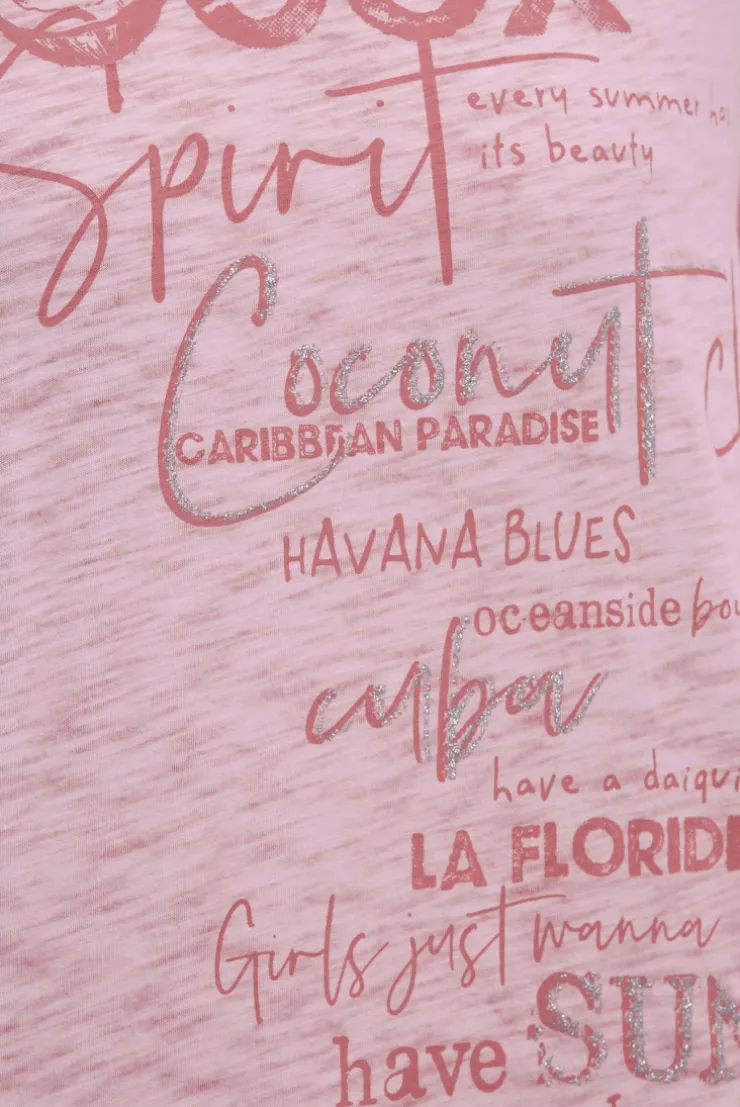 Spirit
every summer
its beauty
Coconut
CARIBBEAN PARADISE
HAVANA BLUES
oceanside
cuba
have a
LA
Girls just wanna
have SUN